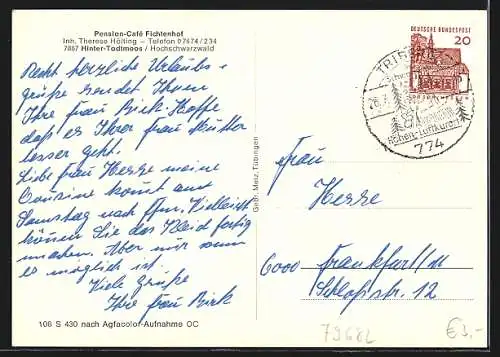 Pension-Café Fichtenhof
Inh. Therese Hölting – Telefon 07674/234
7867 Hinter-Todtmoos / Hochschwarzwald
Recht herzliche Urlaubs-
grüße sendet Ihnen
Ihre Frau Birk. Hoffe
daß es Ihrer Frau Mutter
besser geht.
Liebe Frau Herre meine
Cousine kommt am
Samstag nach Ffm. Vielleicht
können Sie das Kleid fertig
machen. Aber nur wenn
es möglich ist.
Viele Grüße
Ihre Frau Birk
106 S 430 nach Agfacolor-Aufnahme OC
Gebr. Metz, Tübingen
DEUTSCHE BUNDESPOST
20
TRIBERG
Höhen-Luftkurort
774
Frau
Herre
6000 Frankfurt/M
Schloßstr. 12
79682
€3,-